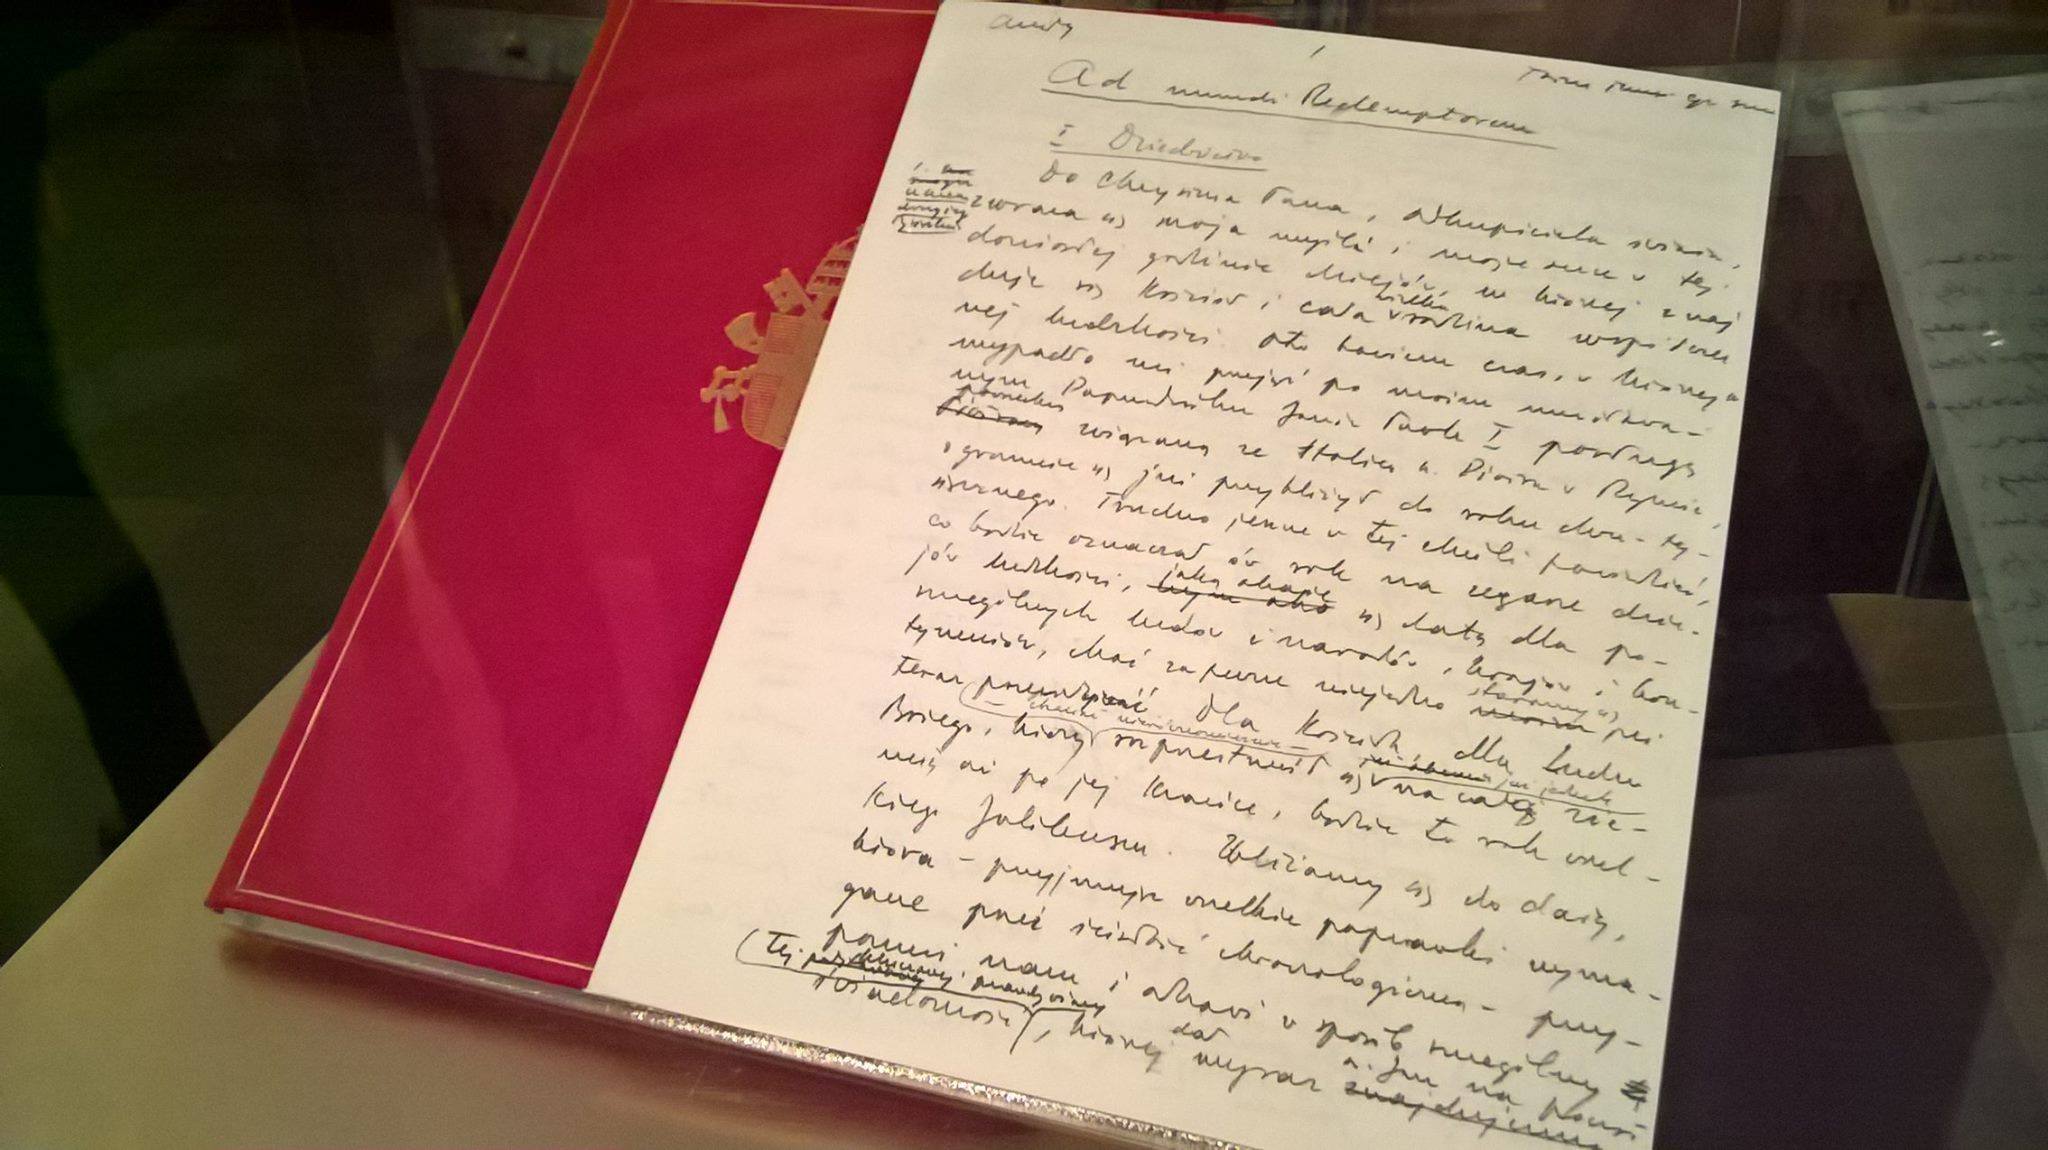 Ad mundi Redemptorem
I Dziedzictwo
Do Chrystusa Pana, Odkupiciela świata,
zwraca się moja myśl i moje serce w tej
doniosłej godzinie dziejów, w której znaj
duje się Kościół i cała wielka rodzina współczes
nej ludzkości. Oto bowiem czas, w którym
wypadło mi przejąć po moim umiłowa-
nym Poprzedniku Janie Pawle I posługę
związaną ze Stolicą św. Piotra w Rzymie,
ogromnie się już przybliżył do roku dwu-ty-
sięcznego. Trudno jeszcze w tej chwili powiedzieć,
co będzie oznaczał ów rok na zegarze dzie-
jów ludzkości, jaką okaże się datą dla po-
szczególnych ludów i narodów, krajów i kon-
tynentów, choć zapewne niejedno staramy się już
teraz przewidzieć. Dla Kościoła, dla Ludu
Bożego, który – chociaż nierównomiernie – rozprzestrzenił się już jednak na całą zie-
mię aż po jej krańce, będzie to rok wiel-
kiego Jubileuszu. Zbliżamy się do daty,
która – przyjmując wszelkie poprawki wyma-
gane przez ścisłość chronologiczną – przy-
pomni nam i odnowi w sposób szczególny
tej kluczowej prawdy wiary
świadomość, której dał wyraz św. Jan na początk